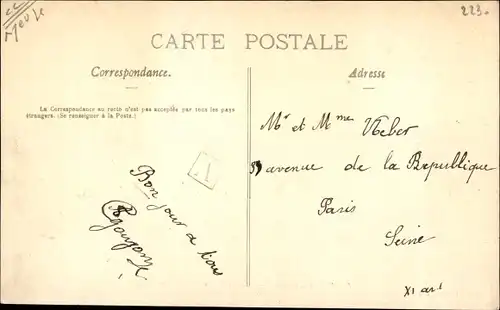 Meuse
223.
CARTE POSTALE
Correspondance.
Adresse
La Correspondance au recto n'est pas acceptée par tous les pays
étrangers. (Se renseigner à la Poste.)
Mr et Mme Weber
avenue de la République
Paris
Seine
XI art
Bon jour a tous